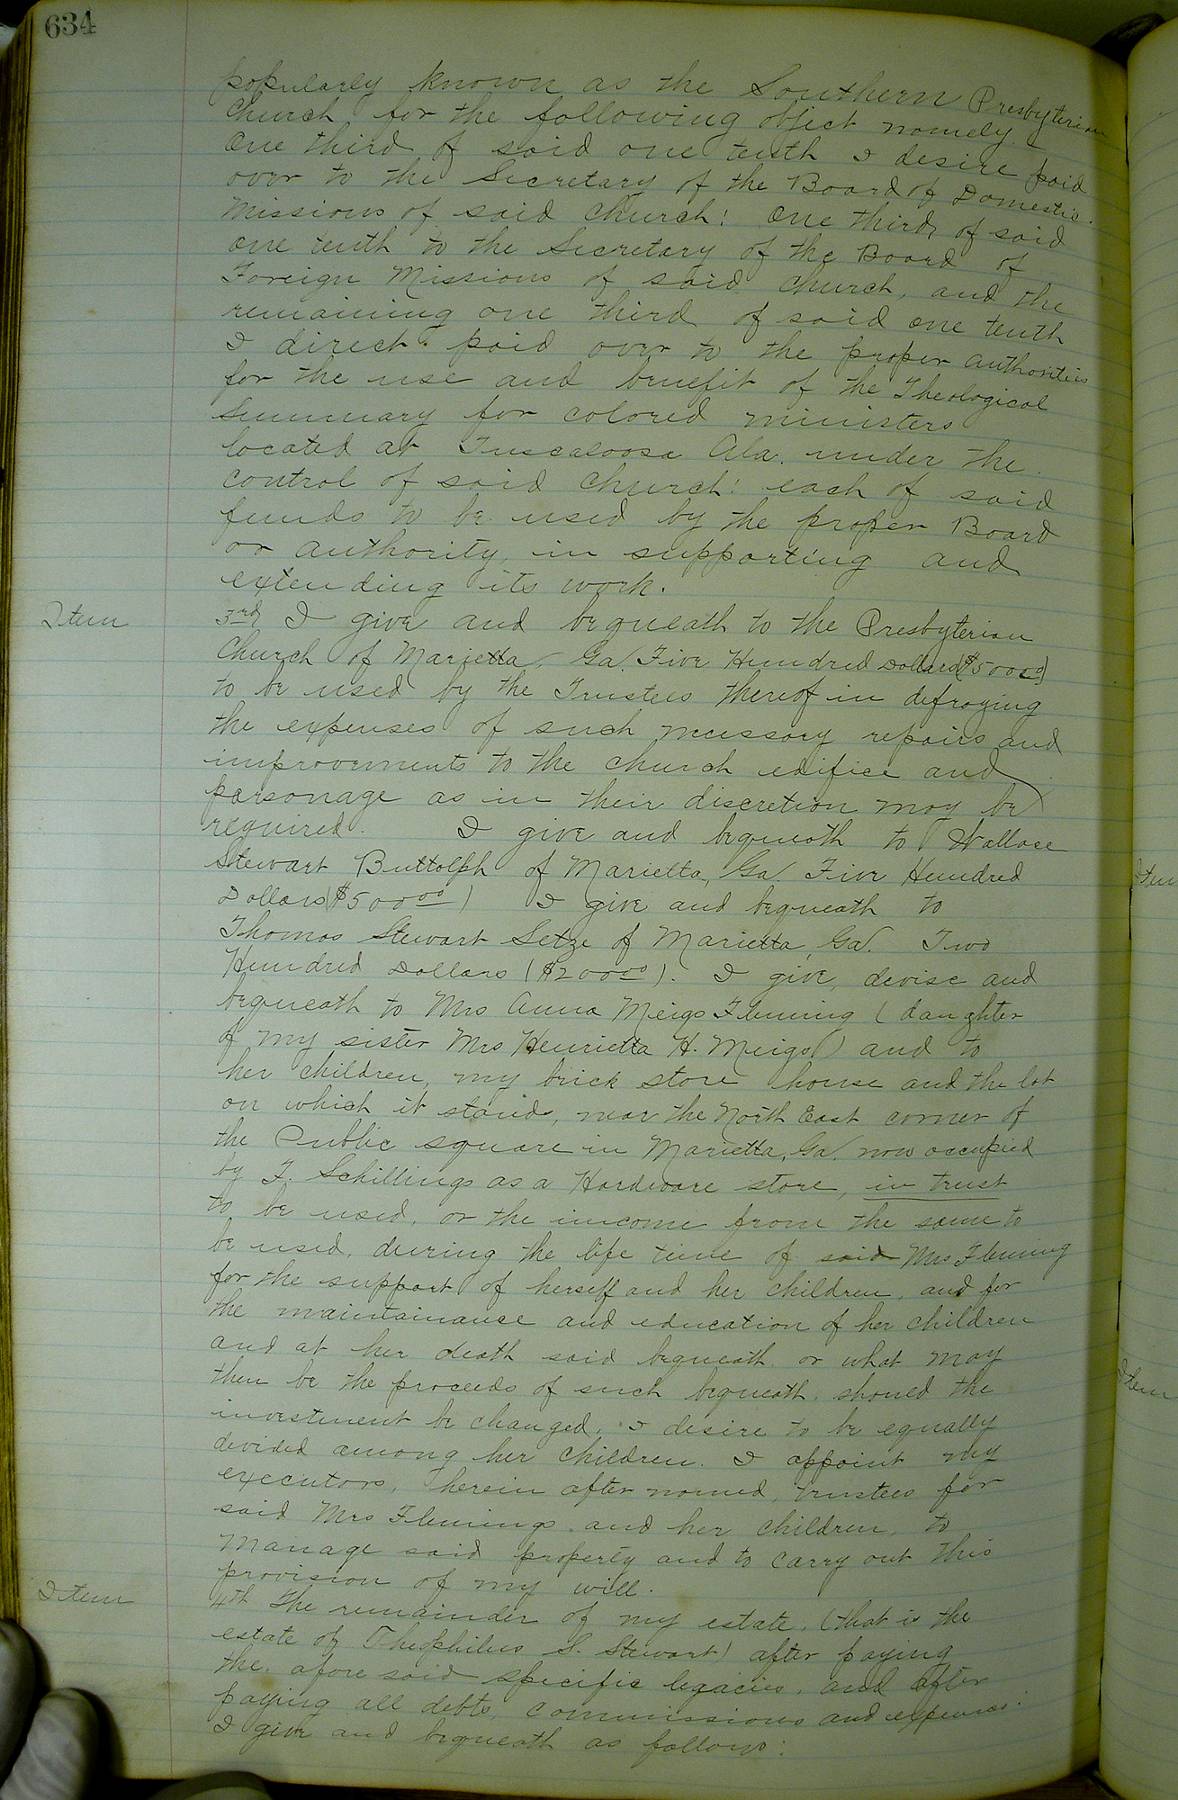 634
popularly known as the Southern Presbyterian
Church for the following object namely
One third of said one tenth I desire paid
over to the Secretary of the Board of Domestic
Missions of said Church: One third of said
one tenth to the Secretary of the Board of
Foreign Missions of said Church, and the
remaining one third of said one tenth
I direct paid over to the proper authorities
for the use and benefit of the Theological
Summary for colored ministers
located at Tuscaloosa Ala. under the
control of said Church: each of said
funds to be used by the proper Board
or authority, in supporting and
extending its work.
Item 3rd I give and bequeath to the Presbyterian
Church of Marietta, Ga. Five Hundred Dollars ($500.00)
to be used by the Trustees thereof in defraying
the expenses of such necessary repairs and
improvements to the church edifice and
parsonage as in their discretion may be
required. I give and bequeath to Wallace
Stewart Buttolph of Marietta, Ga Five Hundred
Dollars ($500 00) I give and bequeath to
Thomas Stewart Setze of Marietta, Ga. Two
Hundred Dollars ($200 00). I give, devise and
bequeath to Mrs Anna Meigs Fleming (daughter
of my sister Mrs Henrietta H. Meigs) and to
her children, my brick store house and the lot
on which it stands, near the North East corner of
the Public square in Marietta, Ga. now occupied
by T. Schillings as a Hardware store, in trust
to be used, or the income from the same to
be used, during the life time of said Mrs Fleming
for the support of herself and her children, and for
the maintainance and education of her children
and at her death said bequeath or what may
then be the proceeds of such bequeath, should the
investment be changed, I desire to be equally
divided among her children. I appoint my
executors, herein after named, trustees for
said Mrs Fleming and her children, to
manage said property and to carry out this
provision of my will.
Item 4th The remainder of my estate, (that is the
estate of Theophilus S. Stewart) after paying
the afore said specific legacies, and after
paying all debts, commissions and expenses
I give and bequeath as follows:
Item
Item